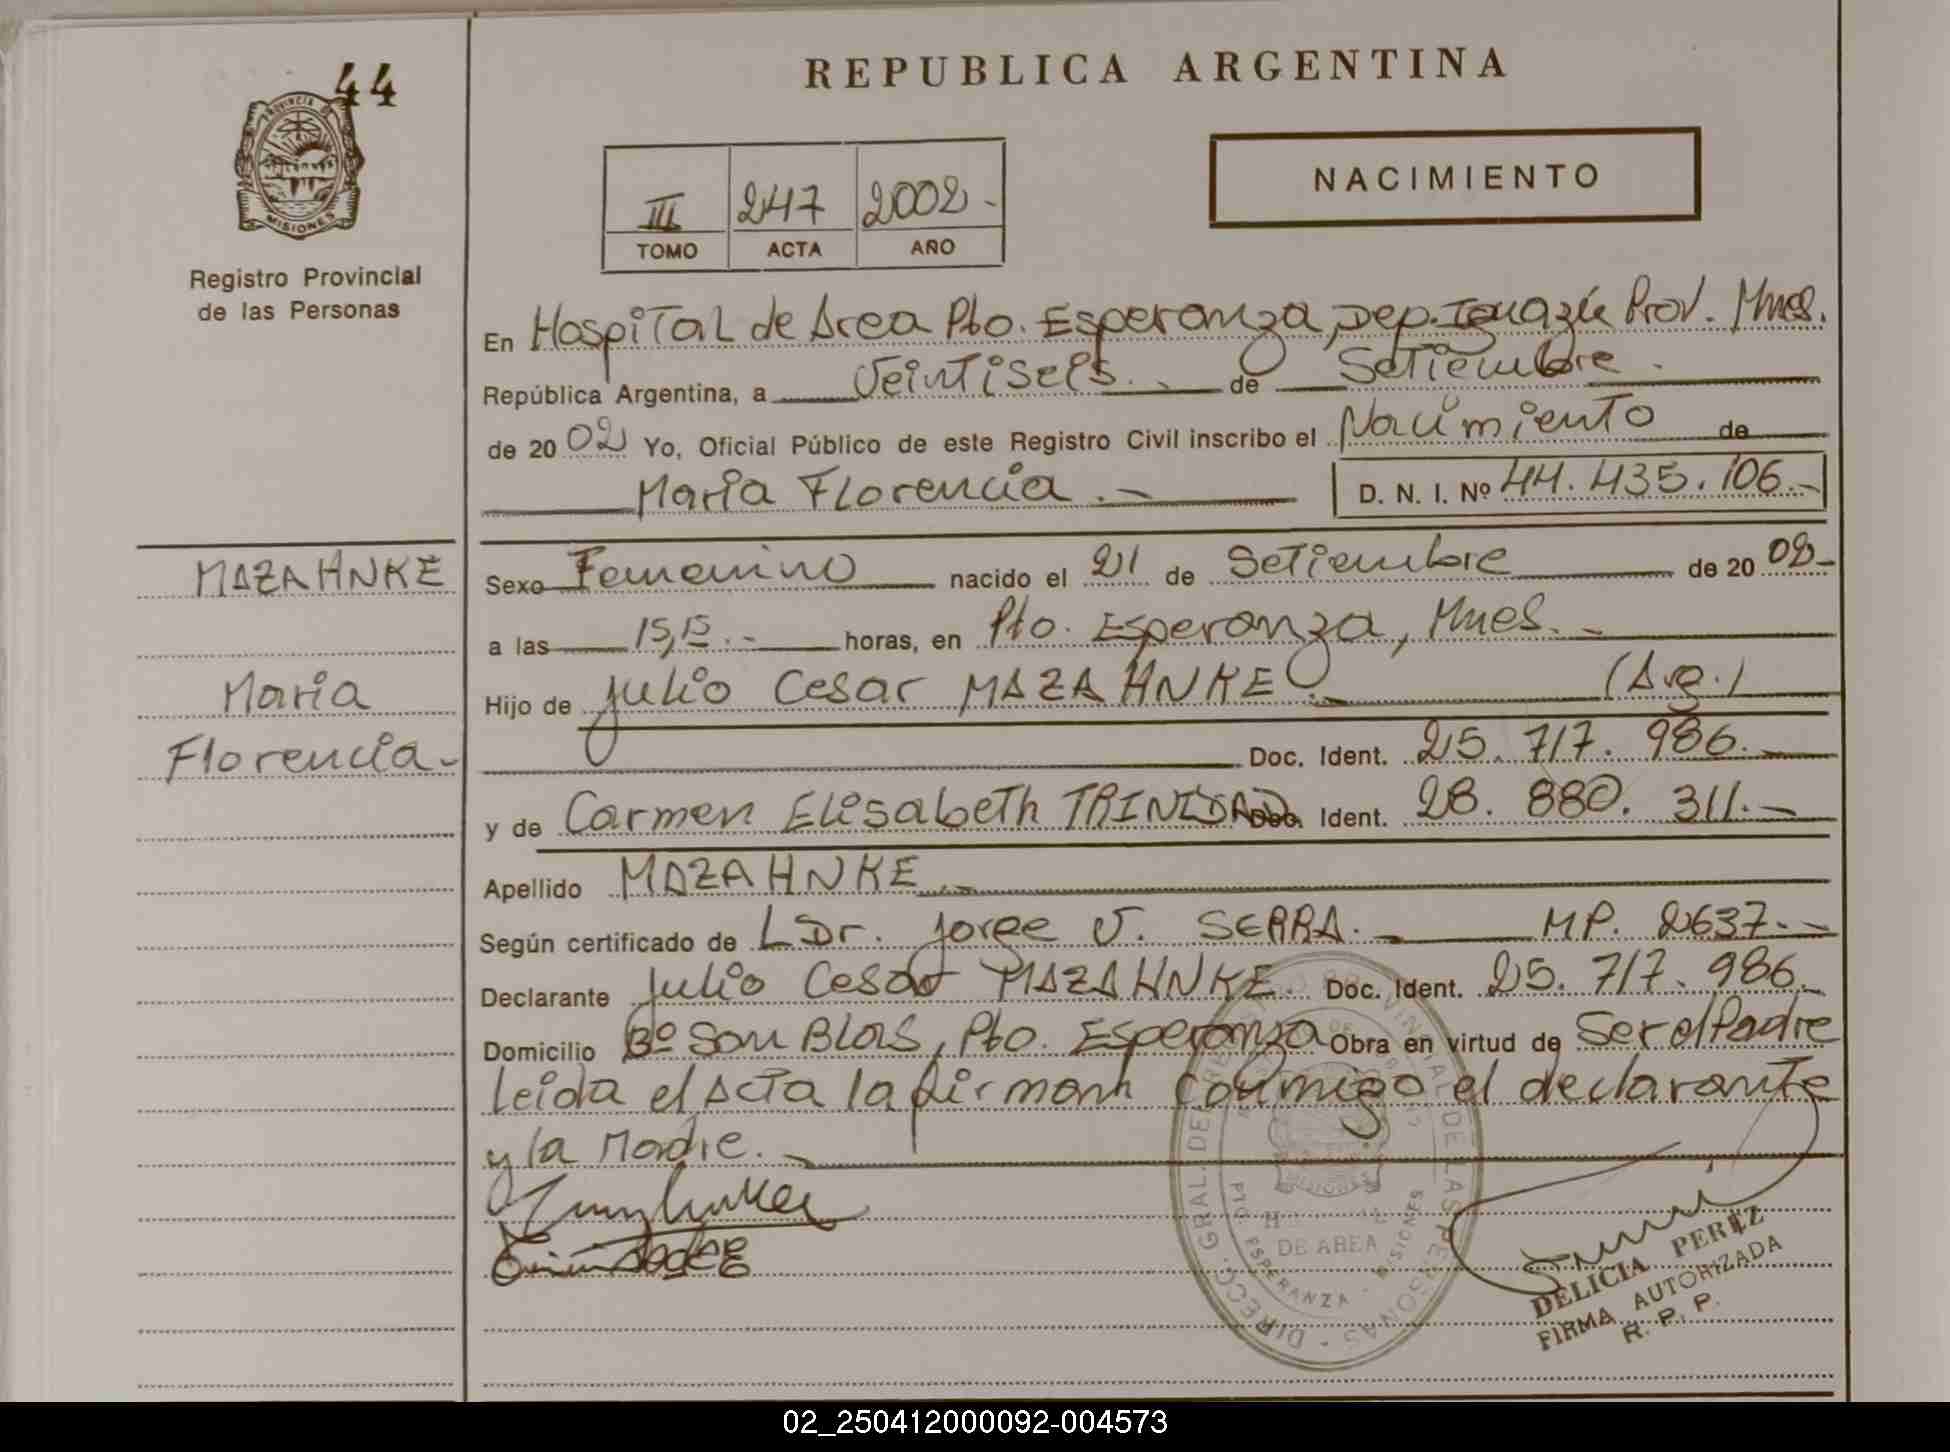 44
PROVINCIA DE
MISIONES
Registro Provincial
de las Personas
REPUBLICA ARGENTINA
III 247 2002.-
TOMO ACTA AÑO
NACIMIENTO
En Hospital de Area Pto. Esperanza, Dep. Iguazú Prov. Mnes.
República Argentina, a Veintiseis.- de Setiembre.
de 2002 Yo, Oficial Público de este Registro Civil inscribo el Nacimiento de
Maria Florencia.- D. N. I. Nº 44.435.106.-
MAZAHNKE
Maria
Florencia-
Sexo Femenino nacido el 21 de Setiembre de 2002-
a las 15,15.- horas, en Pto. Esperanza, Mnes.-
Hijo de Julio Cesar MAZAHNKE.- (Arg.)
Doc. Ident. 25.717.986.-
y de Carmen Elisabeth TRINIDAD Doc. Ident. 28.880.311.-
Apellido MAZAHNKE.-
Según certificado de LDr. Jorge V. SERRA.- MP. 2637.-
Declarante Julio Cesar MAZAHNKE. Doc. Ident. 25.717.986.
Domicilio Bº San BLAS, Pto. Esperanza Obra en virtud de Ser el Padre
Leida el Acta la firman conmigo el declarante
y la Madre.-
DIRECC. GRAL. DEL REGISTRO PROVINCIAL DE LAS PERSONAS
DE AREA
PTO. ESPERANZA - MISIONES
DELICIA PEREZ
FIRMA AUTORIZADA
R. P. P.
02_250412000092-004573